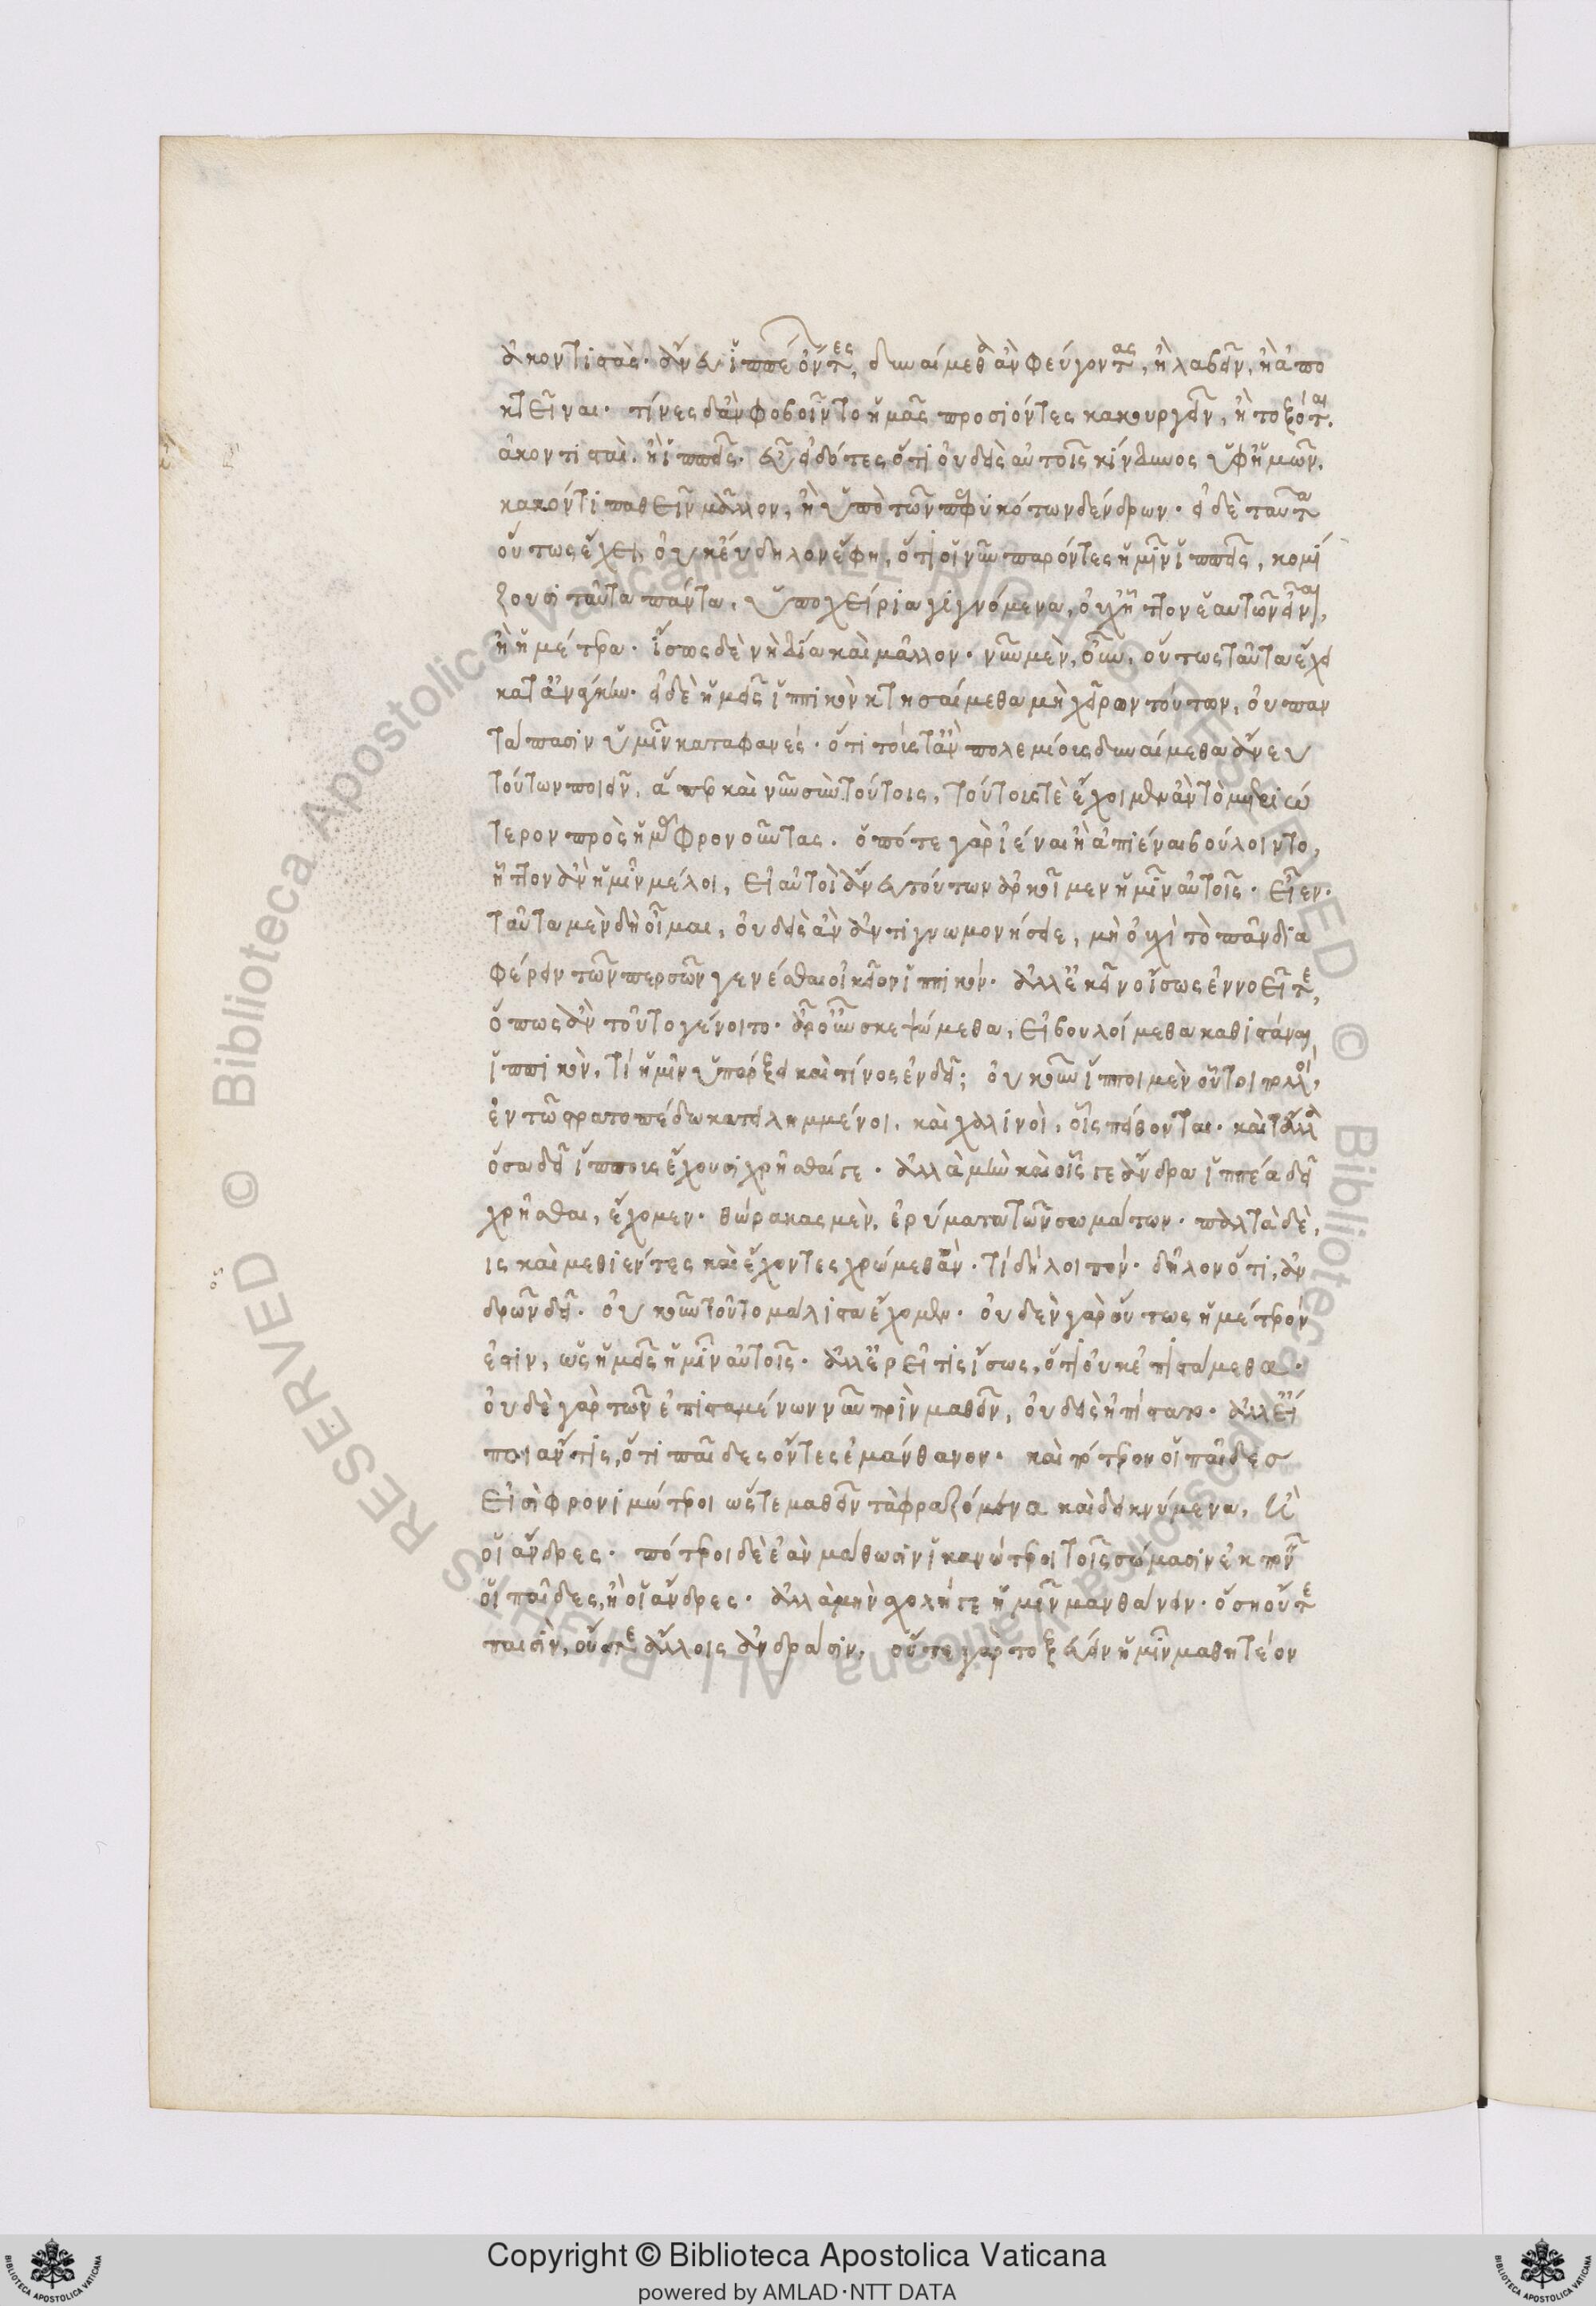 ἀκοντιστὰς. ἄνευ ἵππων ὄντες, δυναίμεθα ἂν φεύγοντας, ἢ λαβεῖν, ἢ ἀπο
κτεῖναι. τίνες δ' ἂν φοβοῖντο ἡμᾶς προσιόντες κακουργεῖν, ἢ τοξόται.
ἀκοντισταὶ. ἢ ἱππεῖς. εὖ εἰδότες ὅτι οὐδεὶς αὐτοῖς κίνδυνος ὑφ' ἡμῶν.
κακόν τι παθεῖν μᾶλλον, ἢ ὑπὸ τῶν πεφυκότων δένδρων. εἰ δὲ ταῦτα
οὕτως ἔχει, οὐκ εὔδηλον ἔφη, ὅτι οἱ νῦν παρόντες ἡμῖν ἱππεῖς, νομί
ζουσι ταῦτα πάντα, ὑποχείρια γιγνόμενα, οὐχ ἧττον ἑαυτῶν εἶναι,
ἢ ἡμέτερα. ἴσως δὲ νὴ Δία καὶ μᾶλλον. νῦν μὲν, οὖν, οὕτως ταῦτα ἔχει
κατ' ἀνάγκην. εἰ δὲ ἡμεῖς ἱππικὸν κτησαίμεθα μὴ χεῖρον τούτων, οὐ παν
τάπασιν ὑμῖν καταφανές. ὅτι τούς τ' ἂν πολεμίους δυναίμεθα ἄνευ
τούτων ποιεῖν, ἅπερ καὶ νῦν σὺν τούτοις, τούτους τὲ ἔχοιμεν ἂν τὸ
τερον πρὸς ἡμᾶς φρονοῦντας. ὁπότε γὰρ ἰέναι ἢ ἀπιέναι βούλοιντο,
ἧττον ἂν ἡμῖν μέλοι, εἰ αὐτοὶ ἄνευ τούτων ἀρκοῖμεν ἡμῖν αὐτοῖς. εἶεν.
ταῦτα μὲν δὴ οἶμαι, οὐδεὶς ἂν ἀντιγνωμονήσειε, μὴ οὐχὶ τὸ πᾶν δια
φέρειν τῶν περσῶν γενέσθαι οἰκεῖον ἱππικόν. ἀλλ' ἐκεῖνο ἴσως ἐννοεῖτε,
ὅπως ἂν τοῦτο γένοιτο. ἆρ' οὖν σκεψώμεθα, εἰ βουλοίμεθα καθιστάναι
ἱππικὸν, τί ἡμῖν ὑπάρξει καὶ τίνος ἐνδεῖ; οὐκοῦν ἵπποι μὲν οὗτοι πολλοὶ,
ἐν τῷ στρατοπέδῳ κατειλημμένοι, καὶ χαλινοὶ, οἷς πείθονται. καὶ τἄλλα
ὅσα δεῖ ἵπποις ἔχουσι χρῆσθαί τε. ἀλλὰ μὴν καὶ οἷς τε ἄνδρα ἱππέα δεῖ
χρῆσθαι, ἔχομεν. θώρακας μὲν, ἐρύματα τῶν σωμάτων. παλτὰ δὲ,
ις καὶ μεθιέντες καὶ ἔχοντες χρώμεθα ἄν. τί δὴ λοιπόν. δῆλον ὅτι, ἀν
δρῶν δεῖ. οὐκοῦν τοῦτο μάλιστα ἔχομεν. οὐδὲν γὰρ οὕτως ἡμέτερόν
ἐστιν, ὡς ἡμεῖς ἡμῖν αὐτοῖς. ἀλλ' ἐρεῖ τις ἴσως, ὅτι οὐκ ἐπιστάμεθα.
οὐδὲ γὰρ τῶν ἐπισταμένων νῦν πρὶν μαθεῖν, οὐδεὶς ἠπίστατο. ἀλλ' εἴ
ποι ἄν τις, ὅτι παῖδες ὄντες ἐμάνθανον. καὶ πότερον οἱ παῖδες
εἰσὶ φρονιμώτεροι ὥστε μαθεῖν τὰ φραζόμενα καὶ δεικνύμενα, ἢ
οἱ ἄνδρες. πότεροι δὲ ἐὰν μάθωσιν ἱκανώτεροι τοῖς σώμασιν ἐκπονεῖν
οἱ παῖδες, ἢ οἱ ἄνδρες. ἀλλὰ μὴν σχολή τε ἡμῖν μανθάνειν. ὅση οὔτε
παισὶν, οὔτε ἄλλοις ἀνδράσιν. οὔτε γὰρ τοξεύειν ἡμῖν μαθητέον
Copyright © Biblioteca Apostolica Vaticana
powered by AMLAD·NTT DATA